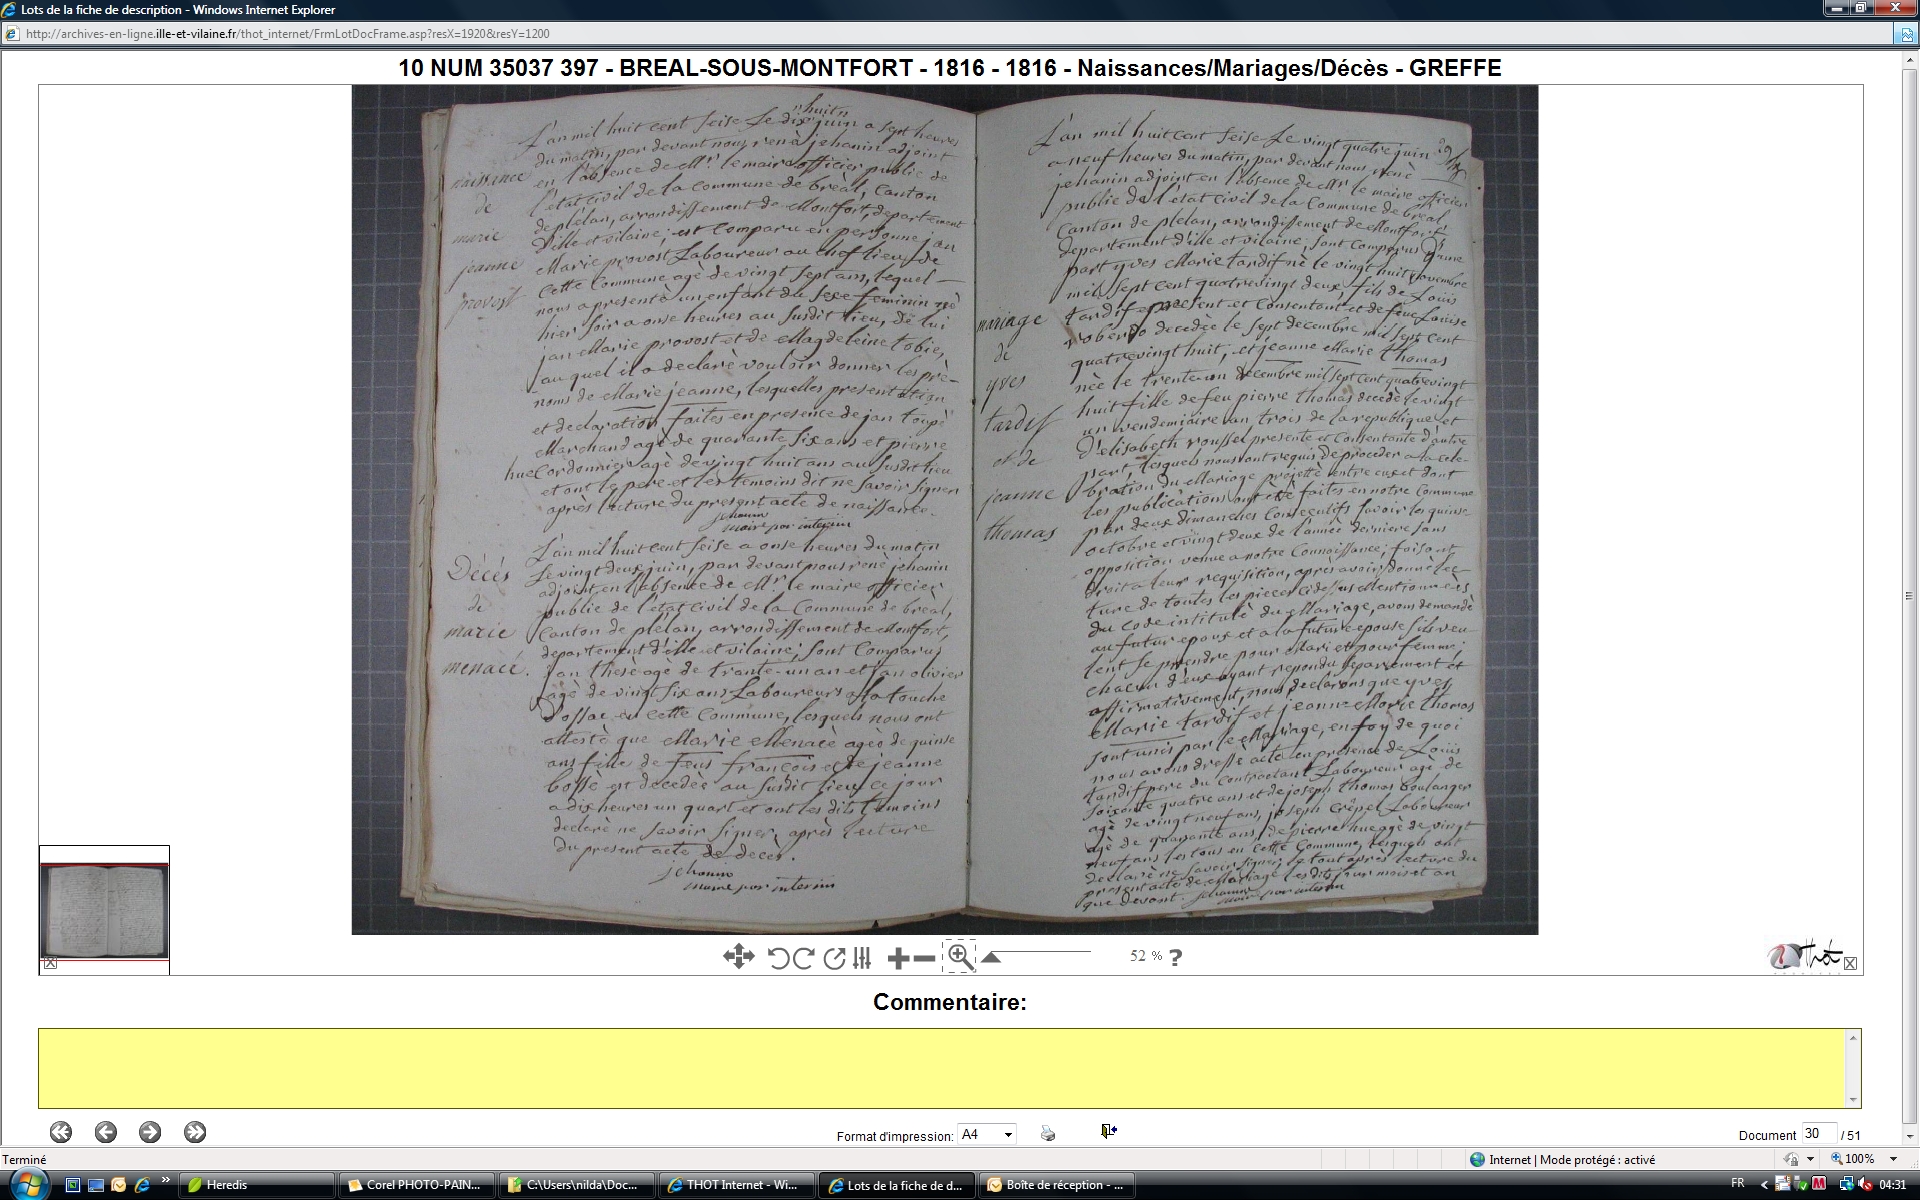 Lots de la fiche de description - Windows Internet Explorer
http://archives-en-ligne.ille-et-vilaine.fr/thot_internet/FrmLotDocFrame.asp?resX=1920&resY=1200
10 NUM 35037 397 - BREAL-SOUS-MONTFORT - 1816 - 1816 - Naissances/Mariages/Décès - GREFFE
naissance
de
marie
jeanne
provost
L'an mil huit cent seise le dix huit juin a sept heures
du matin, par devant nous renà jehanin adjoint
en l'absence de Mr. le maire officier public de
l'etat civil de la commune de breal, canton
de plélan, arrondissement de Montfort, departement
d'ille et vilaine, est comparu en personne jan
Marie provost Laboureur au chef lieu de
cette commune agè de vingt sept ans, lequel
nous a presentè un enfant du sexe feminin nè
hier soir a onse heures au susdit lieu, de lui
jan Marie provost et de Magdeleine tobie,
auquel il a declarè vouloir donner les prè-
noms de Marie jeanne, lesquelles presentation
et declaration faites en presence de jan toupè
Marchand agè de quarante six ans et pierre
hue Cordonnier agè de vingt huit ans au susdit lieu
et ont le pere et les temoins dit ne savoir signer
après lecture du present acte de naissance.
jehanin
maire par interim
Décés
de
marie
menacé.
L'an mil huit cent seise a onse heures du matin
le vingt deux juin, par devant nous renè jehanin
adjoint en l'absence de Mr. le maire officier
public de l'etat civil de la commune de breal,
Canton de plélan, arrondissement de Montfort,
departement d'ille et vilaine, sont comparus
jan thesè agè de trante-un an et jan olivier
agè de vingt six ans Laboureurs a la touche
en cette commune, lesquels nous ont
attestè que Marie Menacè agèe de quinse
ans fille de feus françois et de jeanne
bossè est decedèe au susdit lieu ce jour
a dix heures un quart et ont les dits temoins
declarè ne savoir signer, après lecture
du present acte de decès.
jehanin
maire par interim
mariage
de
yves
tardif
et de
jeanne
thomas
L'an mil huit cent seise le vingt quatre juin
a neuf heures du matin, par devant nous renè
jehanin adjoint en l'absence de Mr le maire officier
public de l'etat civil de la commune de breal
Canton de plélan, arrondissement de Montfort
departement d'ille et vilaine, sont comparus d'une
part yves Marie tardif nè le vingt huit novembre
mil sept cent quatrevingt deux, fils de Louis
tardif present et consentant et de feue Louise
decedèe le sept decembre mil sept cent
quatrevingt huit, et jeanne Marie thomas
nèe le trente-un decembre mil sept cent quatrevingt
huit fille de feu pierre thomas decedè le vingt
un vendemiaire an trois de la republique et
d'elisabeth roussel presente et consentante d'autre
part, lesquels nous ont requis de proceder a la cele-
bration du Mariage projettè entre eux et dont
les publications ont ètè faites en notre commune
par deux dimanches consecutifs savoir les quinse
octobre et vingt deux de l'annèe derniere sans
opposition venue a notre connaissance, faisant
droit a leur requisition, après avoir donnè lec-
ture de toutes les pieces cidessus mentionnèes
du code intitulè du Mariage, avons demandè
au futur epoux et a la future epouse s'ils veu-
lent se prendre pour Mari et pour femme,
chacun d'eux ayant repondu separement et
affirmativement, nous declarons que yves
Marie tardif et jeanne Marie thomas
sont unis par le Mariage, en foy de quoi
nous avons dressè acte en presence de Louis
tardif pere du contractant Laboureur agè de
soixante quatre ans et de joseph thomas boulanger
agè de vingt neuf ans, joseph Crêpel Laboureur
agè de quarante ans, de pierre hue agè de vingt
neuf ans les tous en cette commune lesquels ont
declarè ne savoir signer, le tout après lecture du
present acte de Mariage les dits jour mois et an
que devant. jehanin
maire par interim
52 % ?
Thot
Commentaire:
Format d'impression: A4
Document 30 / 51
Terminé
Internet | Mode protégé : activé
100%
Heredis
Corel PHOTO-PAIN...
C:\Users\nilda\Doc...
THOT Internet - Wi...
Lots de la fiche de d...
Boîte de réception - ...
FR
04:31